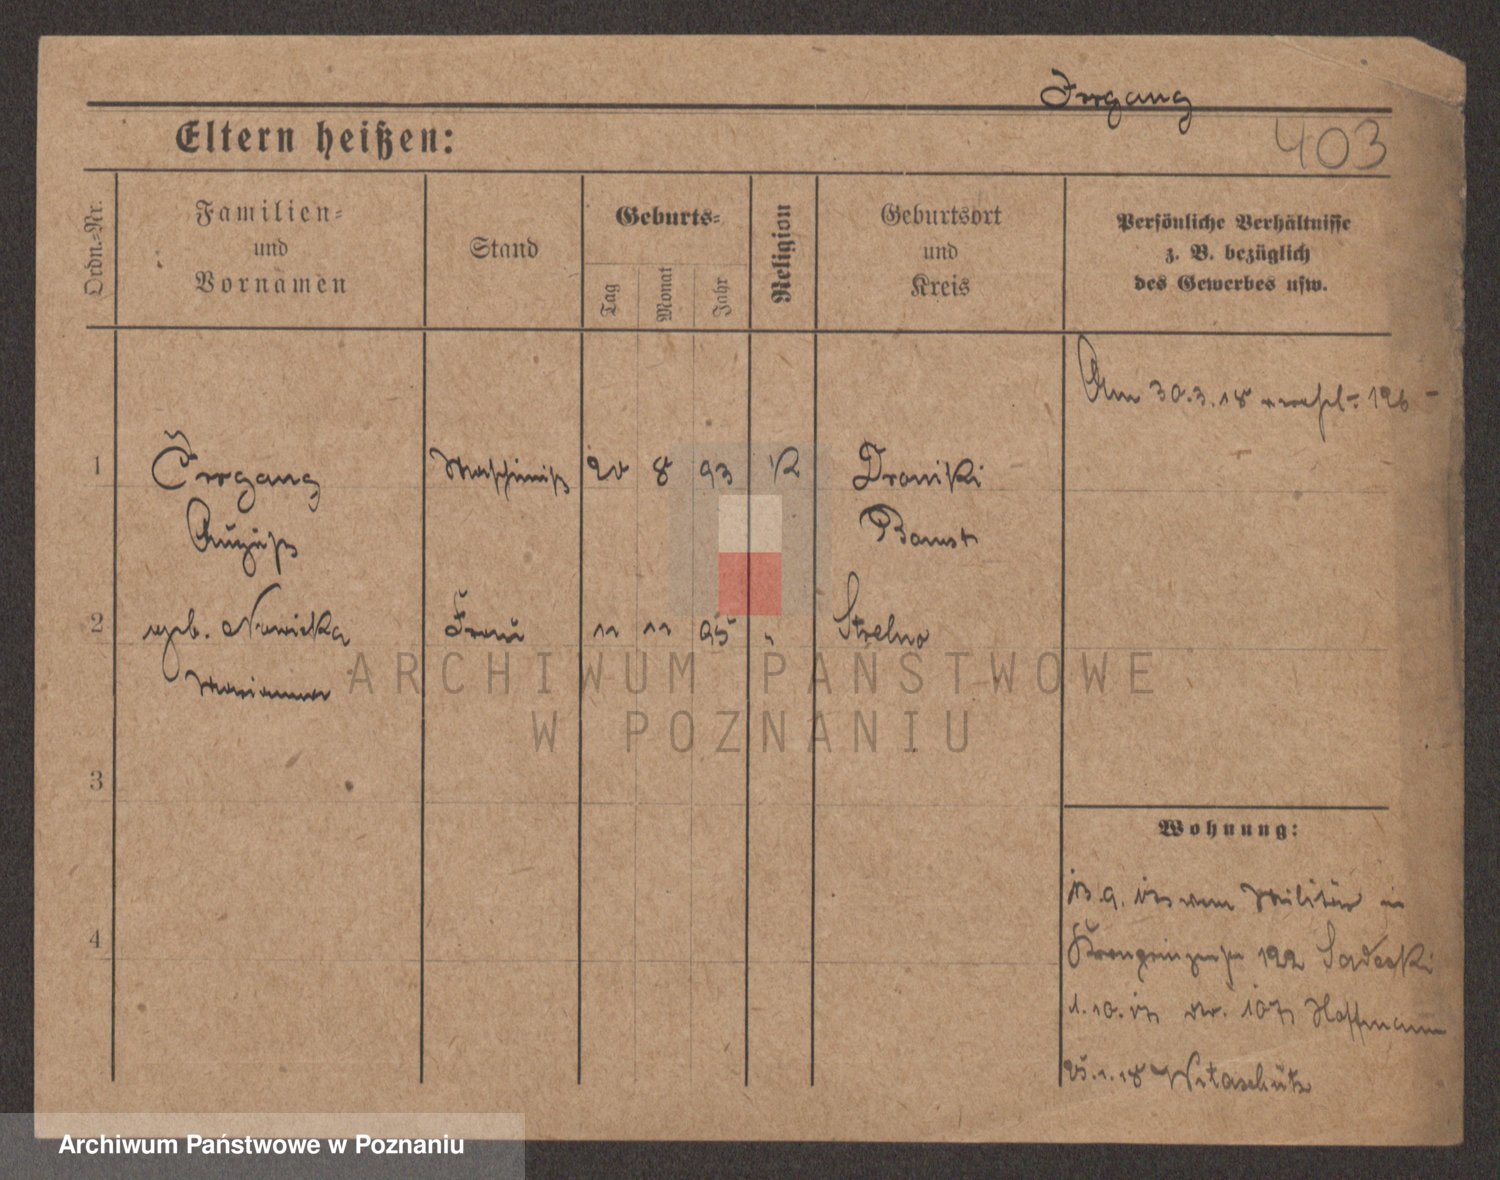 Irrgang
403
Eltern heißen:
Ordn.-Nr.
Familien-
und
Vornamen
Stand
Geburts-
Tag
Monat
Jahr
Religion
Geburtsort
und
Kreis
Persönliche Verhältnisse
z. B. bezüglich
des Gewerbes usw.
Am 30.3.18
1 Irrgang Maschinist 20 8 93 K Droniki
August Bomst
2 geb. Nowicka Frau 11 11 95 " Strelno
Marianna
3
4
Wohnung:
vom Militär in
Kronprinzenstr 122 Sadecki
1.10.17 107 Hoffmann
25.1.18 Witaschütz
ARCHIWUM PAŃSTWOWE
W POZNANIU
Archiwum Państwowe w Poznaniu